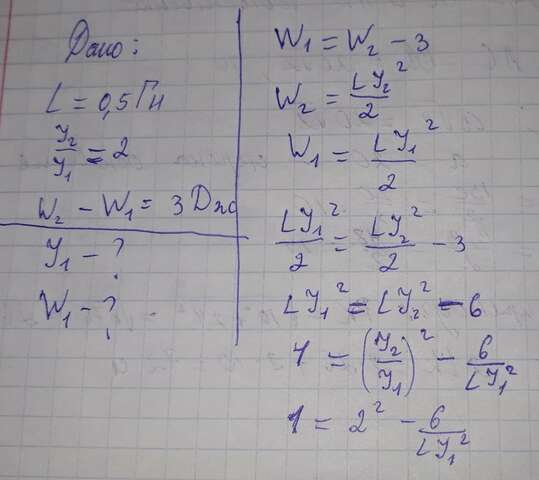 Дано:
L = 0,5 Гн
У₂/У₁ = 2
W₂ – W₁ = 3 Дж
У₁ – ?
W₁ – ?
W₁ = W₂ – 3
W₂ = LУ₂²/2
W₁ = LУ₁²/2
LУ₁²/2 = LУ₂²/2 – 3
LУ₁² = LУ₂² – 6
1 = (У₂/У₁)² – 6/LУ₁²
1 = 2² – 6/LУ₁²